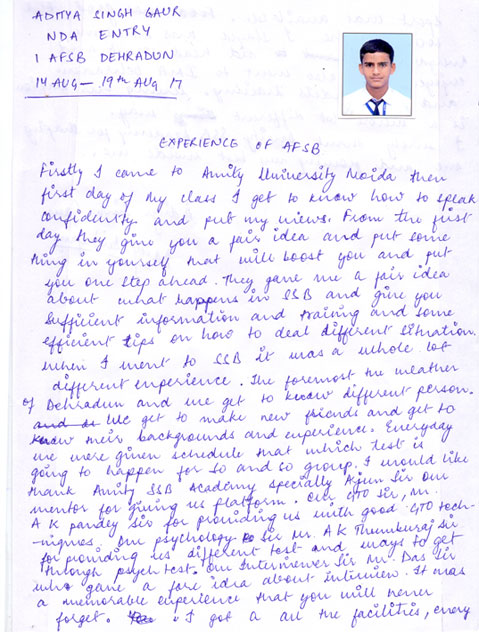 ADITYA SINGH GAUR
NDA ENTRY
1 AFSB DEHRADUN
14 AUG — 19th AUG 17
EXPERIENCE OF AFSB
Firstly I came to Amity University Noida then
first day of my class I get to know how to speak
confidently and put my views. From the first
day they give you a fair idea and put some
thing in yourself that will boost you and put
you one step ahead. They gave me a fair idea
about what happens in SSB and give you
sufficient information and training and some
efficient tips on how to deal different situation.
when I went to SSB it was a whole lot
different experience. The foremost the weather
of Dehradun and we get to know different person.
We get to make new friends and get to
know their backgrounds and experience. Everyday
we were given schedule that which test is
going to happen for so and so group. I would like
thank Amity SSB Academy specially Arjun Sir our
mentor for giving us platform. Our GTO Sir, Mr.
A K pandey Sir for providing us with good GTO tech-
niques. Our psychology Sir Mr. A K Sir
for providing us different test and ways to get
through psych test. Our Interviewer Sir Mr. Das Sir
who gave a fare idea about interview. It was
a memorable experience that you will never
forget. I got a all the facilities, every